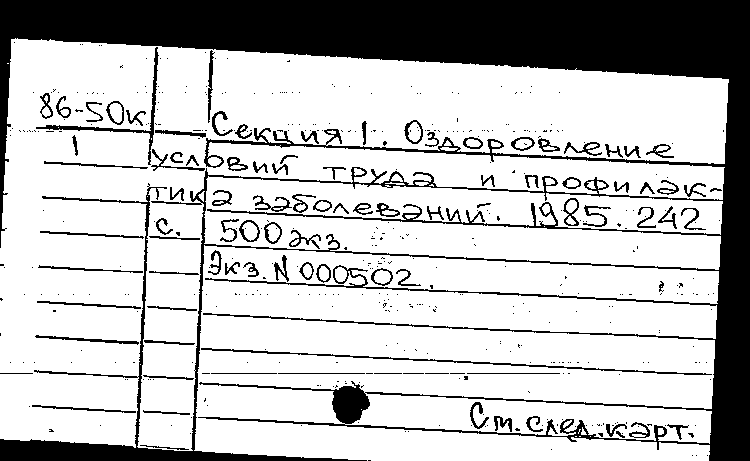 86-50к
1
Секция 1. Оздоровление
условий труда и профилак-
тика заболеваний. 1985. 242
с. 500 экз.
Экз. N 000502.
См. след. карт.